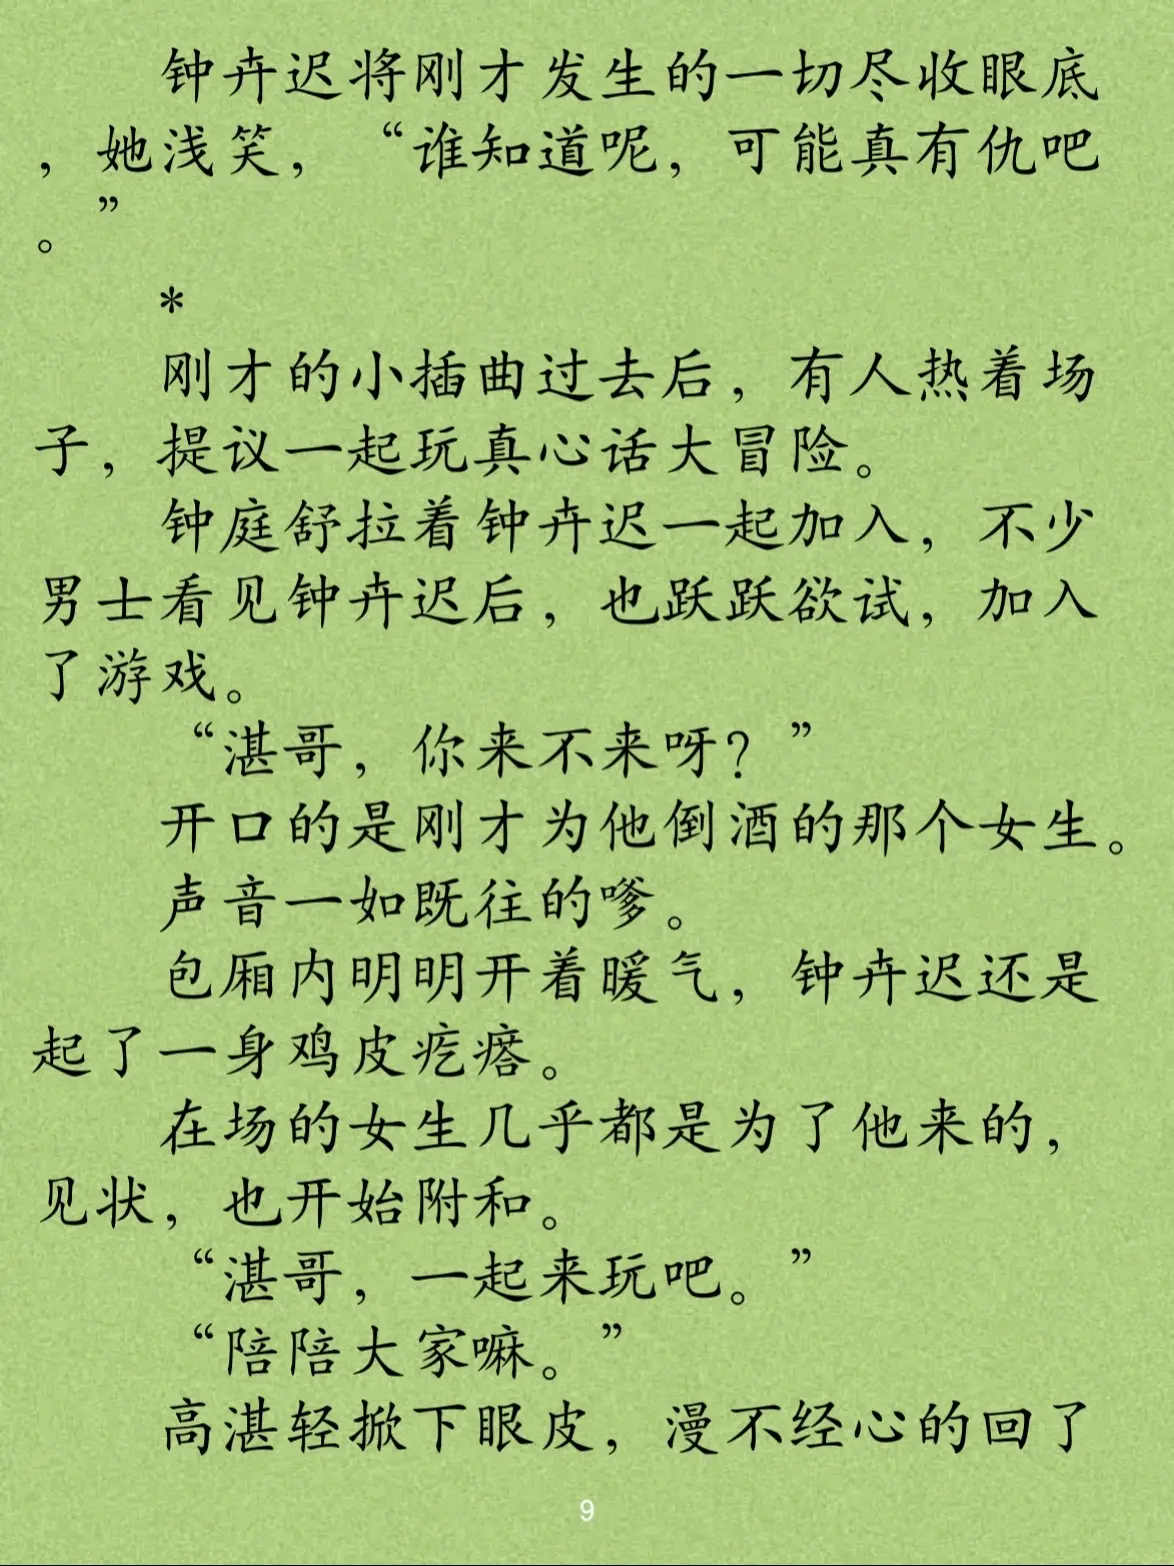 钟卉迟将刚才发生的一切尽收眼底
，她浅笑，“谁知道呢，可能真有仇吧
。”
*
刚才的小插曲过去后，有人热着场
子，提议一起玩真心话大冒险。
钟庭舒拉着钟卉迟一起加入，不少
男士看见钟卉迟后，也跃跃欲试，加入
了游戏。
“湛哥，你来不来呀？”
开口的是刚才为他倒酒的那个女生。
声音一如既往的嗲。
包厢内明明开着暖气，钟卉迟还是
起了一身鸡皮疙瘩。
在场的女生几乎都是为了他来的，
见状，也开始附和。
“湛哥，一起来玩吧。”
“陪陪大家嘛。”
高湛轻掀下眼皮，漫不经心的回了
9